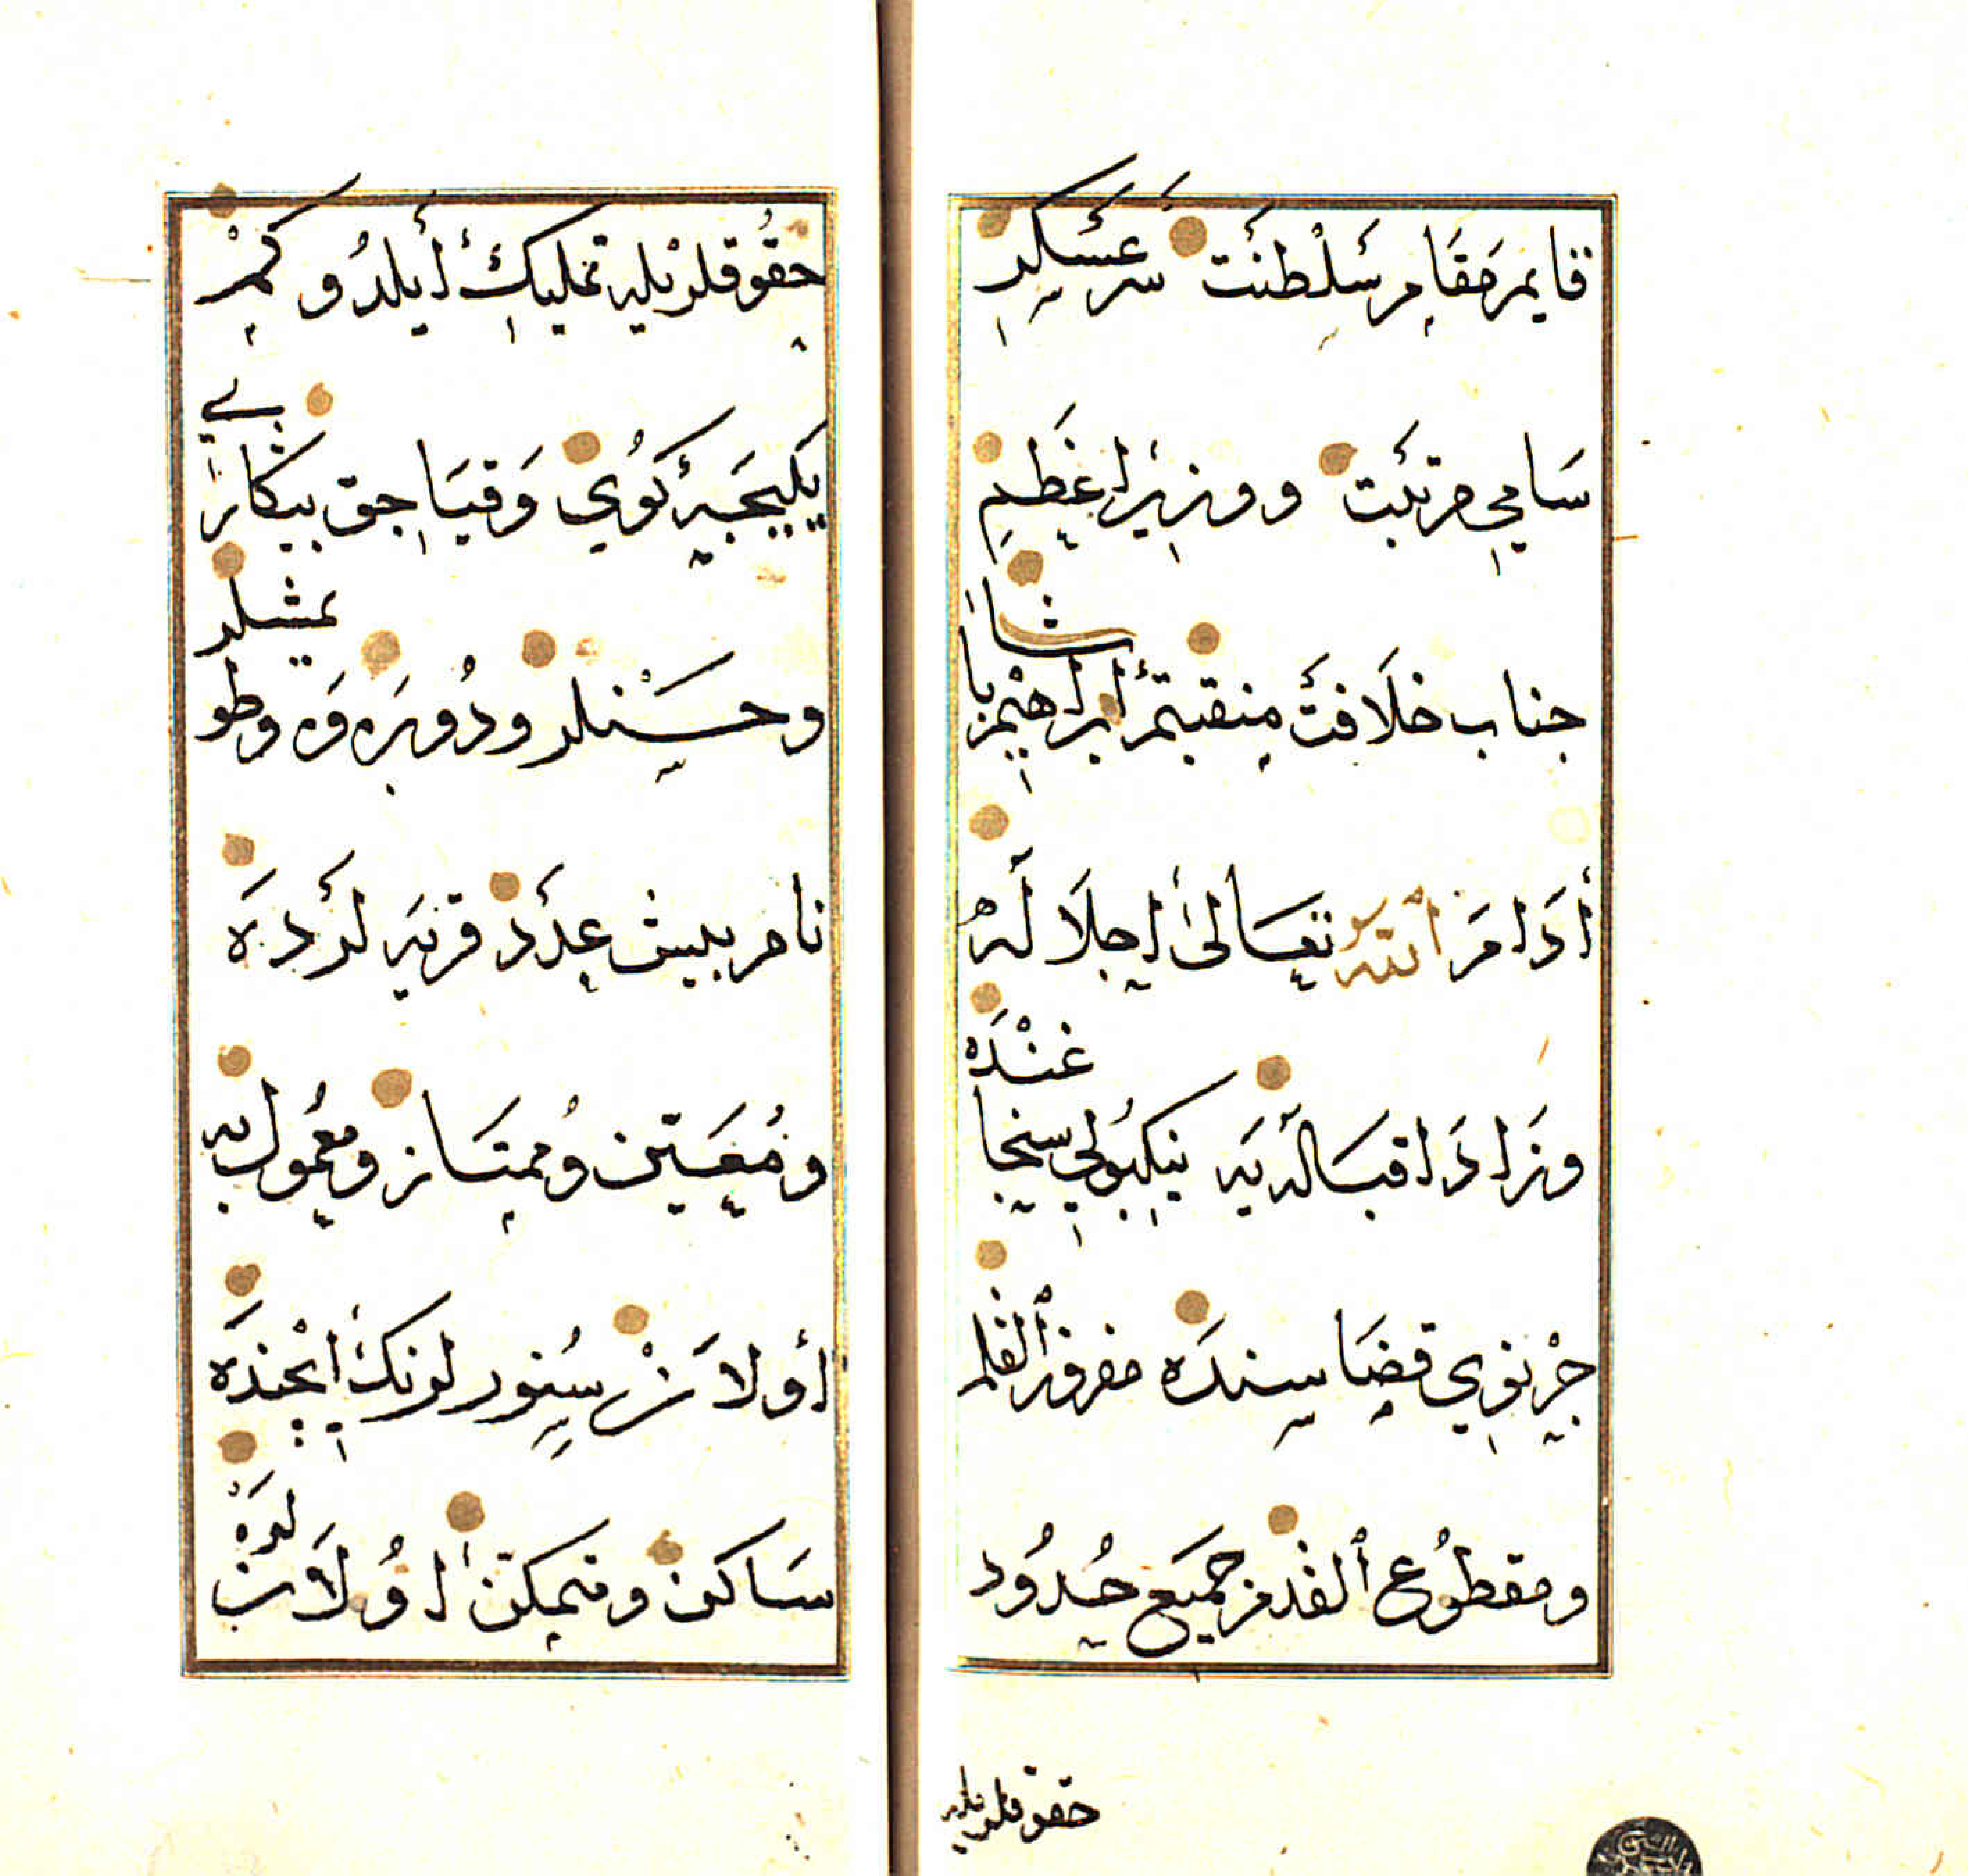 قایم مقام سلطنت سرعسکر
سامي مرتبت و وزیر اعظم
جناب خلافت منقبتم ابراهیم پاشا
أدام الله تعالی اجلاله
وزاد اقباله یه نیکبولي سنجاغنده
چرنوي قضا سنده مفروز القلم
ومقطوع القدم جمیع حدود
حقوقلریله
حقوقلریله تملیك أیلدو کم
یکیجه کوي وقیاجق بیکاري
وحسنلر ودوبره وه وطویمشلر
نام بیش عدد قریه لرده
ومعین وممتاز ومعمول به
أولان سنورلرنك ایچنده
ساکن ومتمکن اولانلره